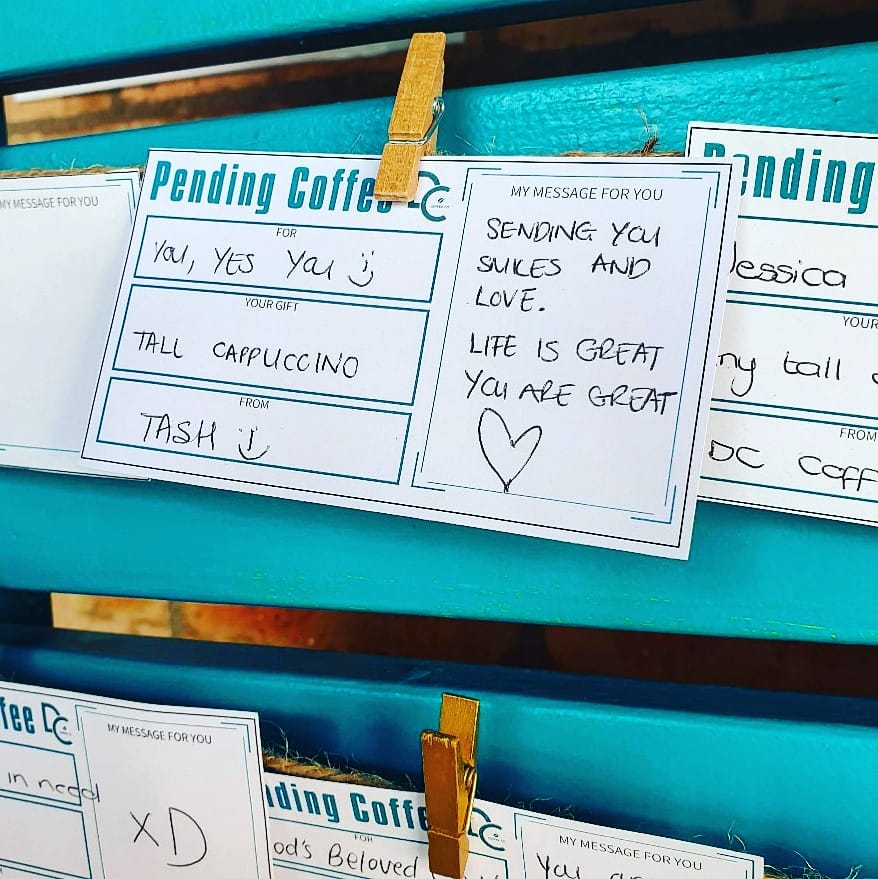 MY MESSAGE FOR YOU
Pending Coffee DC
FOR
YOU, YES YOU :)
YOUR GIFT
TALL CAPPUCCINO
FROM
TASH :)
MY MESSAGE FOR YOU
SENDING YOU
SMILES AND
LOVE.
LIFE IS GREAT
YOU ARE GREAT
Pending
Jessica
YOUR
ny tall
FROM
DC Coff
fee DC
in need
MY MESSAGE FOR YOU
XD
ding Coffee DC
FOR
od's Beloved
MY MESSAGE FOR YOU
You